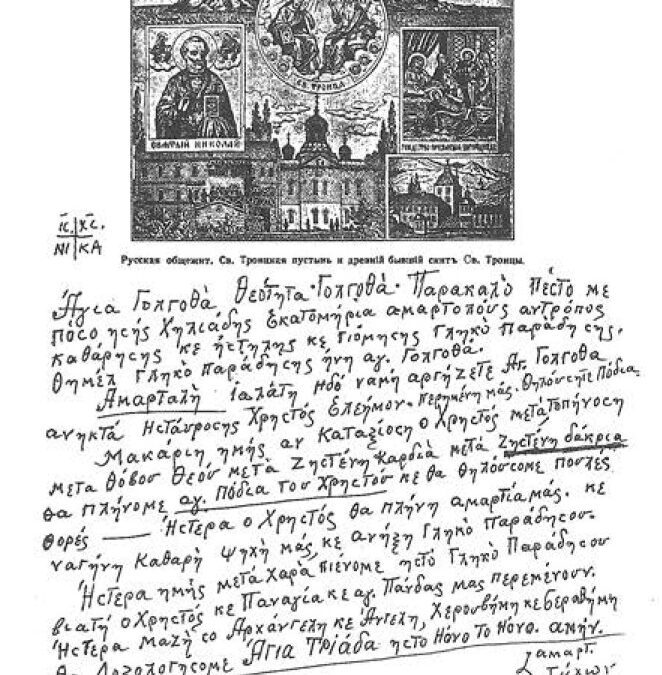 СВ. ТРОИЦА
СВЯТЫЙ НИКОЛАЙ
IC. XC.
NI KA
Русская общежит. Св. Троицкая пустынь и древній бывшій скитъ Св. Троицы.
Ἁγια Γολγοθὰ Θεότητα · Γολγοθὰ · Παρακαλὸ Πέςτο με
ποςο ηςής Χηλιάδης Εκατομήρια αμαρτολούς αντρόπος
καθάρηςης κε ήςτηλης κε Γιόμηςης Γληκὸ Παράδηςης.
θημέλ Γληκὸ παράδηςης ήνη αγ. Γολγοθὰ.
Αμαρταλὴ Ιαλάτη ηδὸ ναμὴ αργήζετε Αγ. Γολγοθα
ανηκτά Ηςταύροςης Χρηςτός Ελεήμον. περημένη μάς. Θηλούςητε Πόδια
Μακάρι ημής αν Καταξίοςη ο Χρηςτός μετάτοπήνοςη
μετα Φόβον Θεού μετὰ Ζηςτένη Καρδιὰ μετὰ Ζηςτένη δάκρια
θα πλήνομε αγ. Πόδια τον Χρηςτον κε θα θηλούςομε πουλές
θορές — Ηςτερα ο Χρηςτός θα πλήνη αμαρτία μάς. κε
ναγήνη Καθαρὴ ψηλὴ μάς κε ανήξη Γληκὸ Παράδηςον.
Ηςτερα ημής μετά χαρὰ πιένομε ηςτὸ Γληκὸ Παράδηςον
βιατή ο Χρηςτός κε Παναγία κε αγ. Πάνδας μας περεμένουν.
Ηςτερα μαζὴ ςο Αρχάνγεληκε Άνγελη, Χερουβήμη κε Σεραθήμη
θα Δοξολογηςομε Ἁγια ΤΡΙάδα ηςτο Ηόνο Το Ηόνο. αμήν.
αμαρτ.
Τύχων